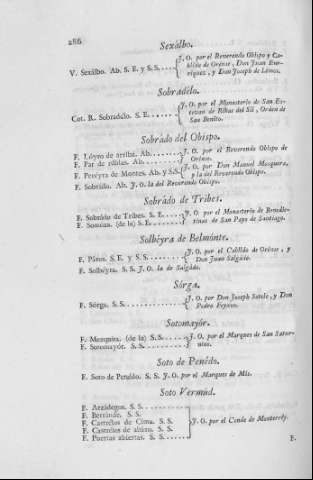 286
Sexálbo.
J. O. por el Reverendo Obispo y Ca-
V. Sexálbo. Ab. S. E. y S. S. bildo de Orénse, Don Juan Enr-
riquez, y Don Joseph de Lémos.
Sobradélo.
J. O. por el Monasterio de San Es-
Cot. R. Sobradélo. S. E. tevan de Ribas del Sil, Orden de
San Benito.
Sobrádo del Obispo.
F. Lóyro de arriba. Ab. J. O. por el Reverendo Obispo de
F. Par de Ab. Orénse.
F. Pereyra de Montes. Ab. y S.S. J. O. por Don Manuel Mosquera,
y la del Reverendo Obispo.
F. Sobrádo. Ab. J. O. la del Reverendo Obispo.
Sobrádo de Tribes.
F. Sobrádo de Tribes. S. E. J. O. por el Monasterio de Benedic-
F. (de la) S. E. tinas de San Payo de Santiago.
Solbéyra de Belmónte.
F. Páros. S. E. y S. S. J. O. por el Cabildo de Orénse, y
Don Juan Salgádo.
F. Solbéyra. S. S. J. O. la de Salgádo.
Sórga.
F. Sórga. S. S. J. O. por Don Joseph Sotelo, y Don
Pedro
Sotomayór.
F. Mezquita. (de la) S. S. J. O. por el Marques de San Satur-
F. Sotomayór. S. S. nino.
Soto de Penédo.
F. Soto de Penédo. S. S. J. O. por el Marques de Mós.
Soto Vermúd.
F. Arzádegos. S. S.
F. Berránde. S. S.
F. Castrélos de Cima. S. S. J. O. por el Conde de Monterréy.
F. Castrélos de abáxo. S. S.
F. Puertas abiertas. S. S.
F.